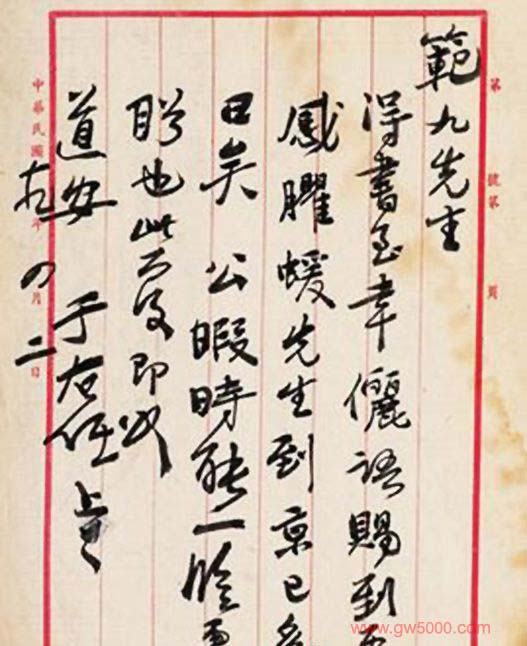 範九先生
得書至幸儷語賜到
感臞蝯先生到京已多
日矣 公暇時能一臨
盼也此覆即頌
道安 于右任 上
九 四 二
第 號第 頁
中華民國 年 月 日
www.gw5000.com